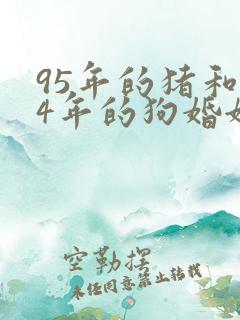 95年的猪和
4年的狗婚姻
空勒摆
未经同意禁止转载